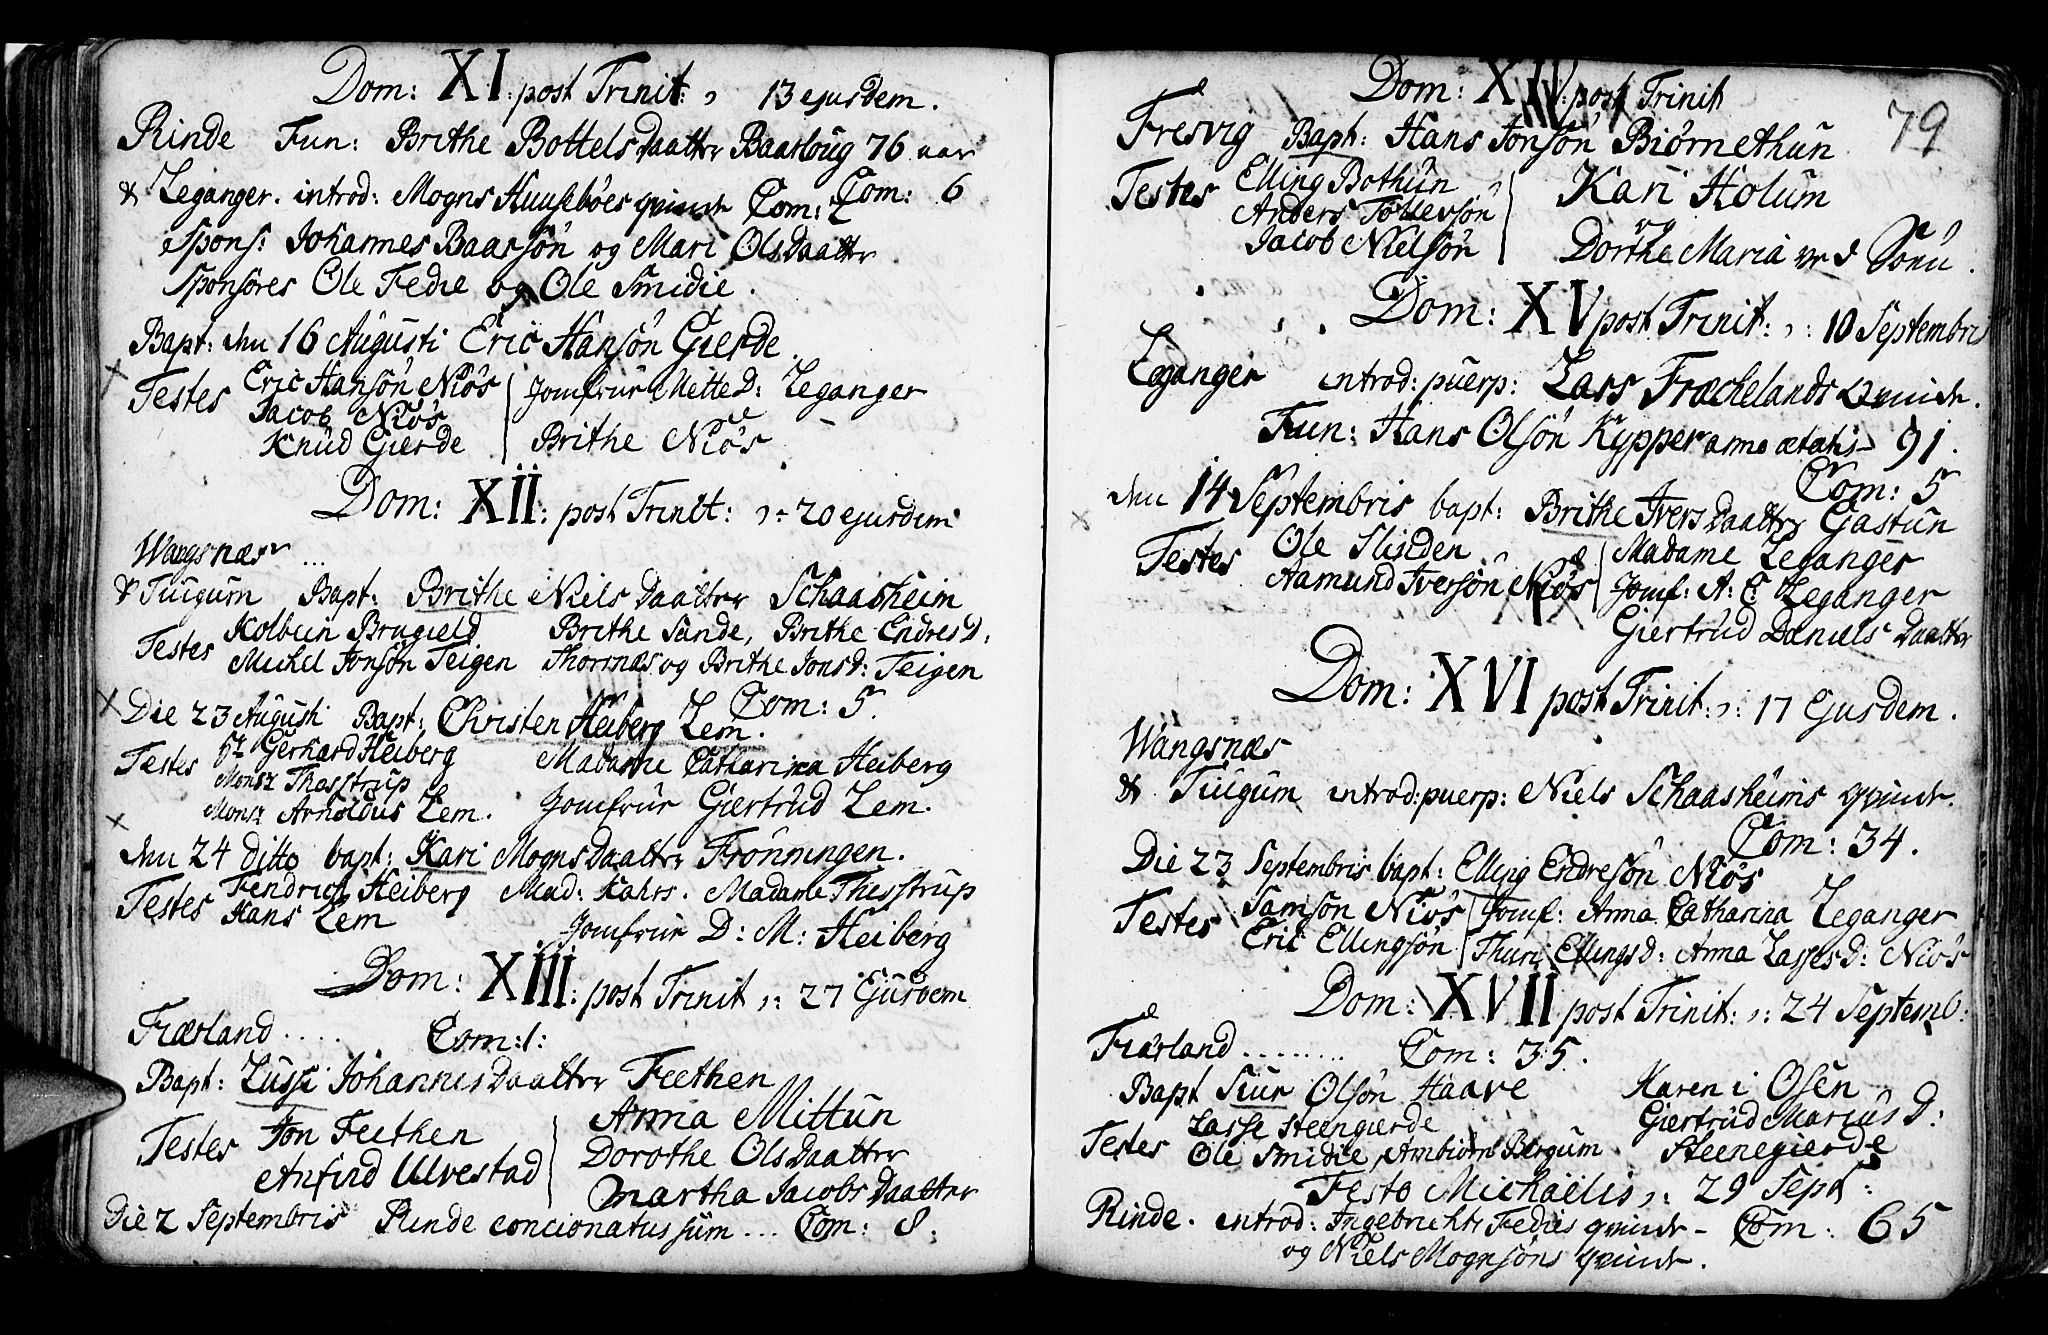 Dom: XI: post Trinit: 13 ejusdem.
Rinde Fun: Brithe Bottels Daatter Baarloug 76 aar
& Leganger. introd: Mogns Huuseböes qvinde Com: 2 Com: 6
Spons: Johannes Baarsön og Mari Olsdaatter
Sponsores Ole Fedie og Ole Smidie.
Bapt: den 16 Augusti Eric Hansön Gierde.
Testes Eric Hansön Niös Jomfrür Mette D: Leganger
Jacob Niös
Knüd Gierde Brithe Niös
Dom: XII: post Trinit: 20 ejusdem
Wangsnæs ...
& Tiugum Bapt: Brithe Niels Daatter Schaasheim
Testes Kolbein Brugield Brithe Sande, Brithe Endres D:
Michel Jonsön Teigen Thorsnæs og Brithe Jonsd: Teigen
Com: 5.
Die 23 Augusti Bapt: Christen Heiberg Lem.
Testes Hr Gerhard Heiberg Madame Catharina Heiberg
Monsr Thesstrup
Monsr Arnoldus Lem. Jomfrür Giertrud Lem.
den 24 ditto bapt: Kari Mogns Daatter Frönningen.
Testes Fendrich Heiberg Mad: Kahrs. Madame Thesstrup
Hans Lem Jomfrür D: M: Heiberg
Dom: XIII: post Trinit 27 Ejusdem
Fiærland ..... Com: 1:
Bapt: Lussi Johannes Daatter Feethen
Testes Jon Feethen Anna Mittun
Anfind Ulvestad Dorothe Ols Daatter
Martha Jacobs Daatter
Die 2 Septembris Rinde concionatus sum ... Com: 8:
Dom: XIV: post Trinit
79
Fresvig Bapt: Hans Jonsön Biörnethun
Testes Elling Bothün Kari Holum
Anders Tollevsön og
Jacob Nielsön Dorthe Maria
Dom: XV post Trinit: 10 Septembris
Leganger introd: puerp: Lars Fræchelands Qvinde.
Fun: Hans Olsön Kypper anno ætatis 91.
Com: 5
den 14 Septembris bapt: Brithe Ivers Daatter Gastun
Testes Ole Slinden Madame Leganger
Aamund Iversön Niös Jomf: A: C: Leganger
Giertrud Daniels Daatter
Dom: XVI post Trinit: 17 Ejusdem.
Wangsnæs
& Tiugum introd: puerp: Niels Schaasheims qvinde.
Com: 34.
Die 23 Septembris bapt: Elling Endresön Niös
Testes Samson Niös Jomf: Anna Catharina Leganger
Eric Ellingsön Thuri Ellingsd: Anna Lasses D: Niös
Dom: XVII post Trinit: 24 Septemb:
Fiærland ........ Com: 35.
Bapt Siur Olsön Haave Karen i Osen
Testes Lasse Steengierde Giertrud Marius D:
Ole Smidie, Ambiörn Bergum Steenegierde
Festo Michaelis, 29 Sept:
Rinde. introd: Ingebrichts Fedies qvinde - Com: 65
og Niels Mognsöns qvinde.